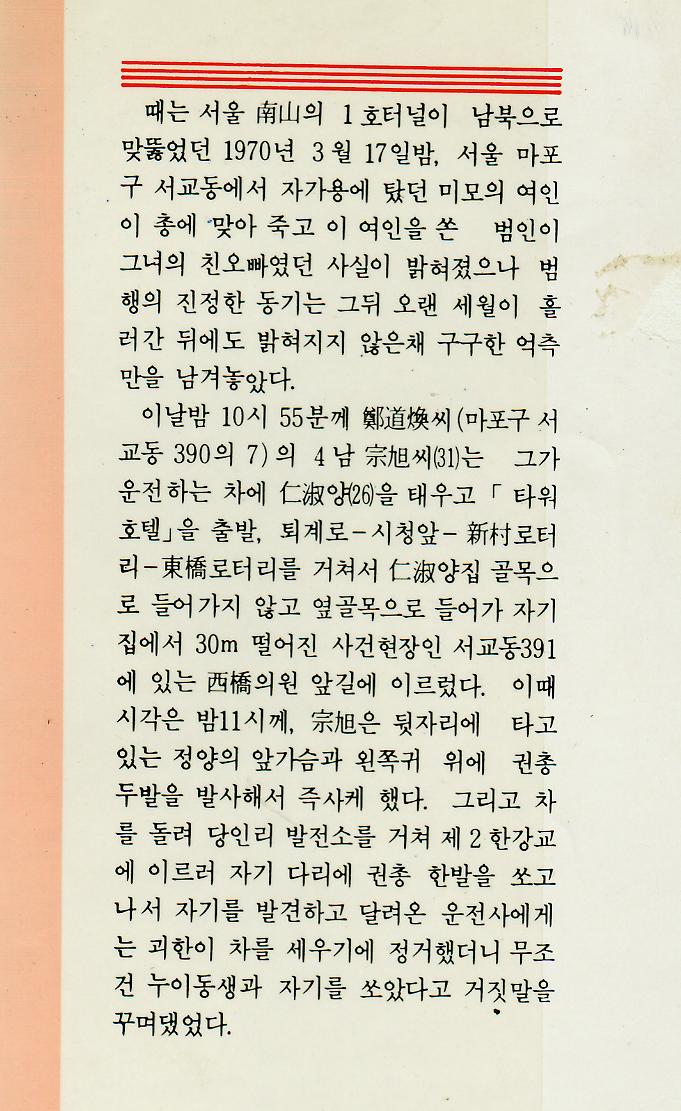 때는 서울 南山의 1호터널이 남북으로
맞뚫었던 1970년 3월 17일밤, 서울 마포
구 서교동에서 자가용에 탔던 미모의 여인
이 총에 맞아 죽고 이 여인을 쏜 범인이
그녀의 친오빠였던 사실이 밝혀졌으나 범
행의 진정한 동기는 그뒤 오랜 세월이 흘
러간 뒤에도 밝혀지지 않은채 구구한 억측
만을 남겨놓았다.
이날밤 10시 55분께 鄭道煥씨(마포구 서
교동 390의 7)의 4남 宗旭씨(31)는 그가
운전하는 차에 仁淑양(26)을 태우고 「타워
호텔」을 출발, 퇴계로-시청앞-新村로터
리-東橋로터리를 거쳐서 仁淑양집 골목으
로 들어가지 않고 옆골목으로 들어가 자기
집에서 30m 떨어진 사건현장인 서교동391
에 있는 西橋의원 앞길에 이르렀다. 이때
시각은 밤11시께, 宗旭은 뒷자리에 타고
있는 정양의 앞가슴과 왼쪽귀 위에 권총
두발을 발사해서 즉사케 했다. 그리고 차
를 돌려 당인리 발전소를 거쳐 제2한강교
에 이르러 자기 다리에 권총 한발을 쏘고
나서 자기를 발견하고 달려온 운전사에게
는 괴한이 차를 세우기에 정거했더니 무조
건 누이동생과 자기를 쏘았다고 거짓말을
꾸며댔었다.